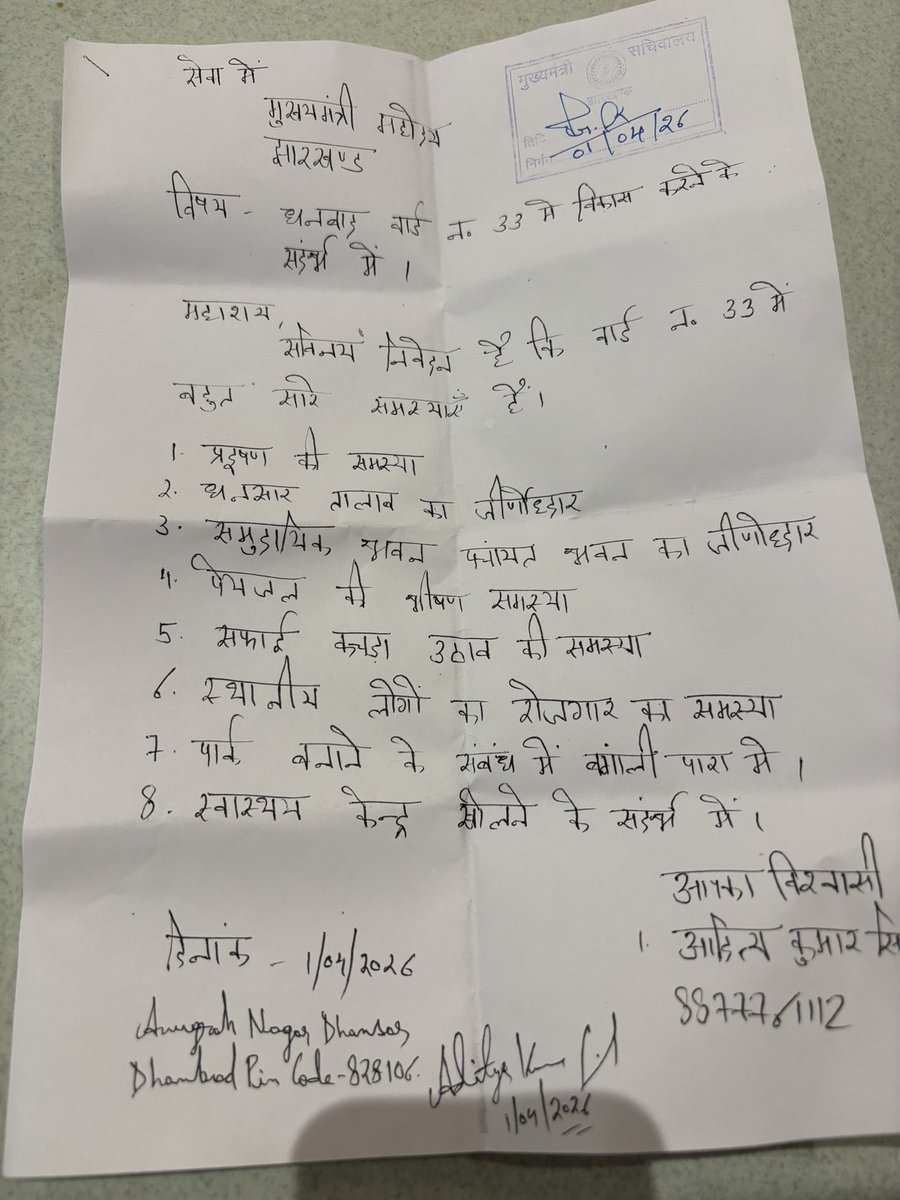 सेवा में
मुख्यमंत्री महोदय
झारखण्ड
मुख्यमंत्री सचिवालय
झारखण्ड
01/04/26
विषय - धनबाद वार्ड न. 33 मे विकास करने के
संदर्भ में ।
महाशय,
सविनय निवेदन है कि वार्ड न. 33 में
बहुत सारे समस्याएँ हैं।
1. प्रदूषण की समस्या
2. धनसार तालाब का जीर्णोद्धार
3. समुदायिक भवन पंचायत भवन का जीणोद्धार
4. पेयजल की भीषण समस्या
5. सफाई कचड़ा उठाव की समस्या
6. स्थानीय लोगों का रोजगार का समस्या
7. पार्क बनाने के संबंध में बंगाली पारा मे ।
8. स्वास्थय केन्द्र खोलने के संदर्भ में ।
आपका विश्वासी
1. आदित्य कुमार सि
8877761112
दिनांक - 1/04/2026
Anugrah Nagar Dhansar
Dhanbad Pin Code-828106.
Aditya Kumar
1/04/2026